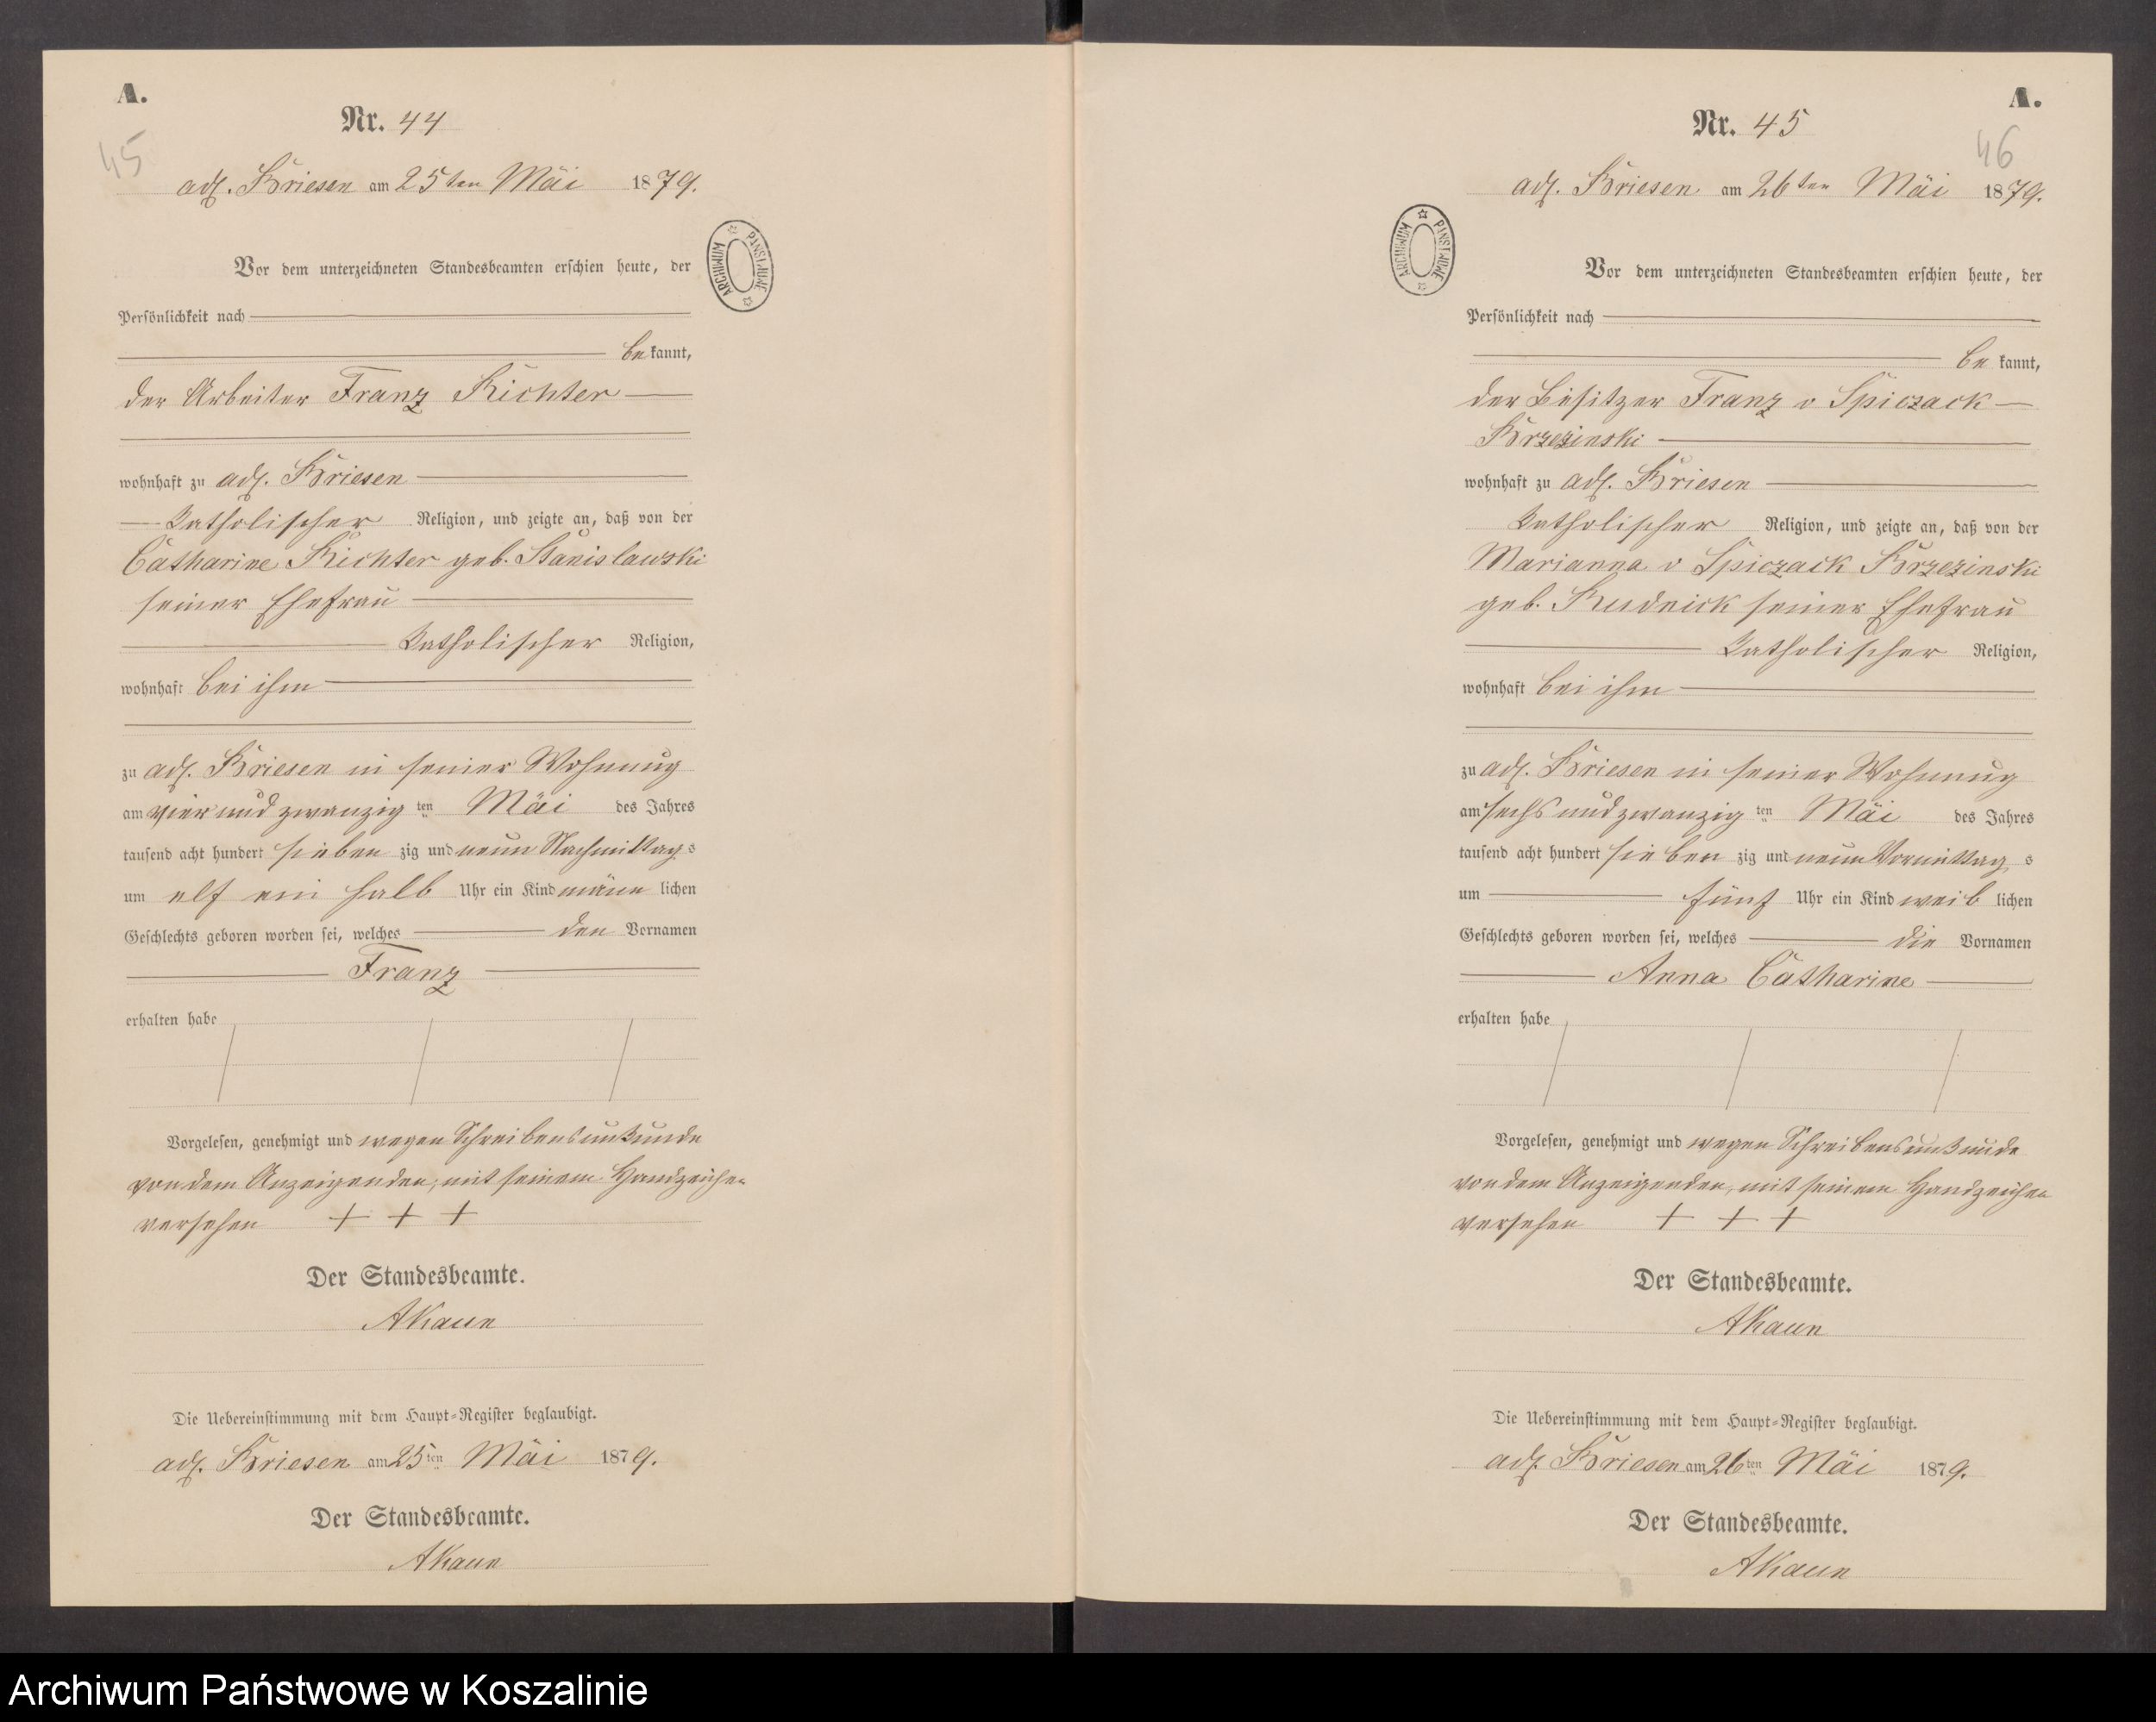 A.
Nr. 44
45
adl. Briesen am 25ten Mai 1879.
ARCHIWUM PAŃSTWOWE
Vor dem unterzeichneten Standesbeamten erschien heute, der
Persönlichkeit nach
bekannt,
der Arbeiter Franz Richter
wohnhaft zu adl. Briesen
katholischer Religion, und zeigte an, daß von der
Catharine Richter geb. Stanislawski
seiner Ehefrau
katholischer Religion,
wohnhaft bei ihm
zu adl. Briesen in seiner Wohnung
am vier und zwanzig ten Mai des Jahres
tausend acht hundert sieben zig und neun Nachmittags
um elf ein halb Uhr ein Kind männ lichen
Geschlechts geboren worden sei, welches den Vornamen
Franz
erhalten habe
Vorgelesen, genehmigt und wegen Schreibensunkunde
von dem Anzeigenden, mit seinem Handzeichen
versehen + + +
Der Standesbeamte.
AKaun
Die Uebereinstimmung mit dem Haupt-Register beglaubigt.
adl. Briesen am 25ten Mai 1879.
Der Standesbeamte.
AKaun
A.
Nr. 45
46
adl. Briesen am 26ten Mai 1879.
ARCHIWUM PAŃSTWOWE
Vor dem unterzeichneten Standesbeamten erschien heute, der
Persönlichkeit nach
be kannt,
der Besitzer Franz v Spiczack
Brzezinski
wohnhaft zu adl. Briesen
katholischer Religion, und zeigte an, daß von der
Marianna v Spiczack Brzezinski
geb. Rudnick seiner Ehefrau
katholischer Religion,
wohnhaft bei ihm
zu adl. Briesen in seiner Wohnung
am sechs und zwanzig ten Mai des Jahres
tausend acht hundert sieben zig und neun Vormittag s
um fünf Uhr ein Kind weib lichen
Geschlechts geboren worden sei, welches die Vornamen
Anna Catharine
erhalten habe
Vorgelesen, genehmigt und wegen Schreibensunkunde
von dem Anzeigenden, mit seinem Handzeichen
versehen + + +
Der Standesbeamte.
AKaun
Die Uebereinstimmung mit dem Haupt-Register beglaubigt.
adl. Briesen am 26ten Mai 1879.
Der Standesbeamte.
AKaun
Archiwum Państwowe w Koszalinie